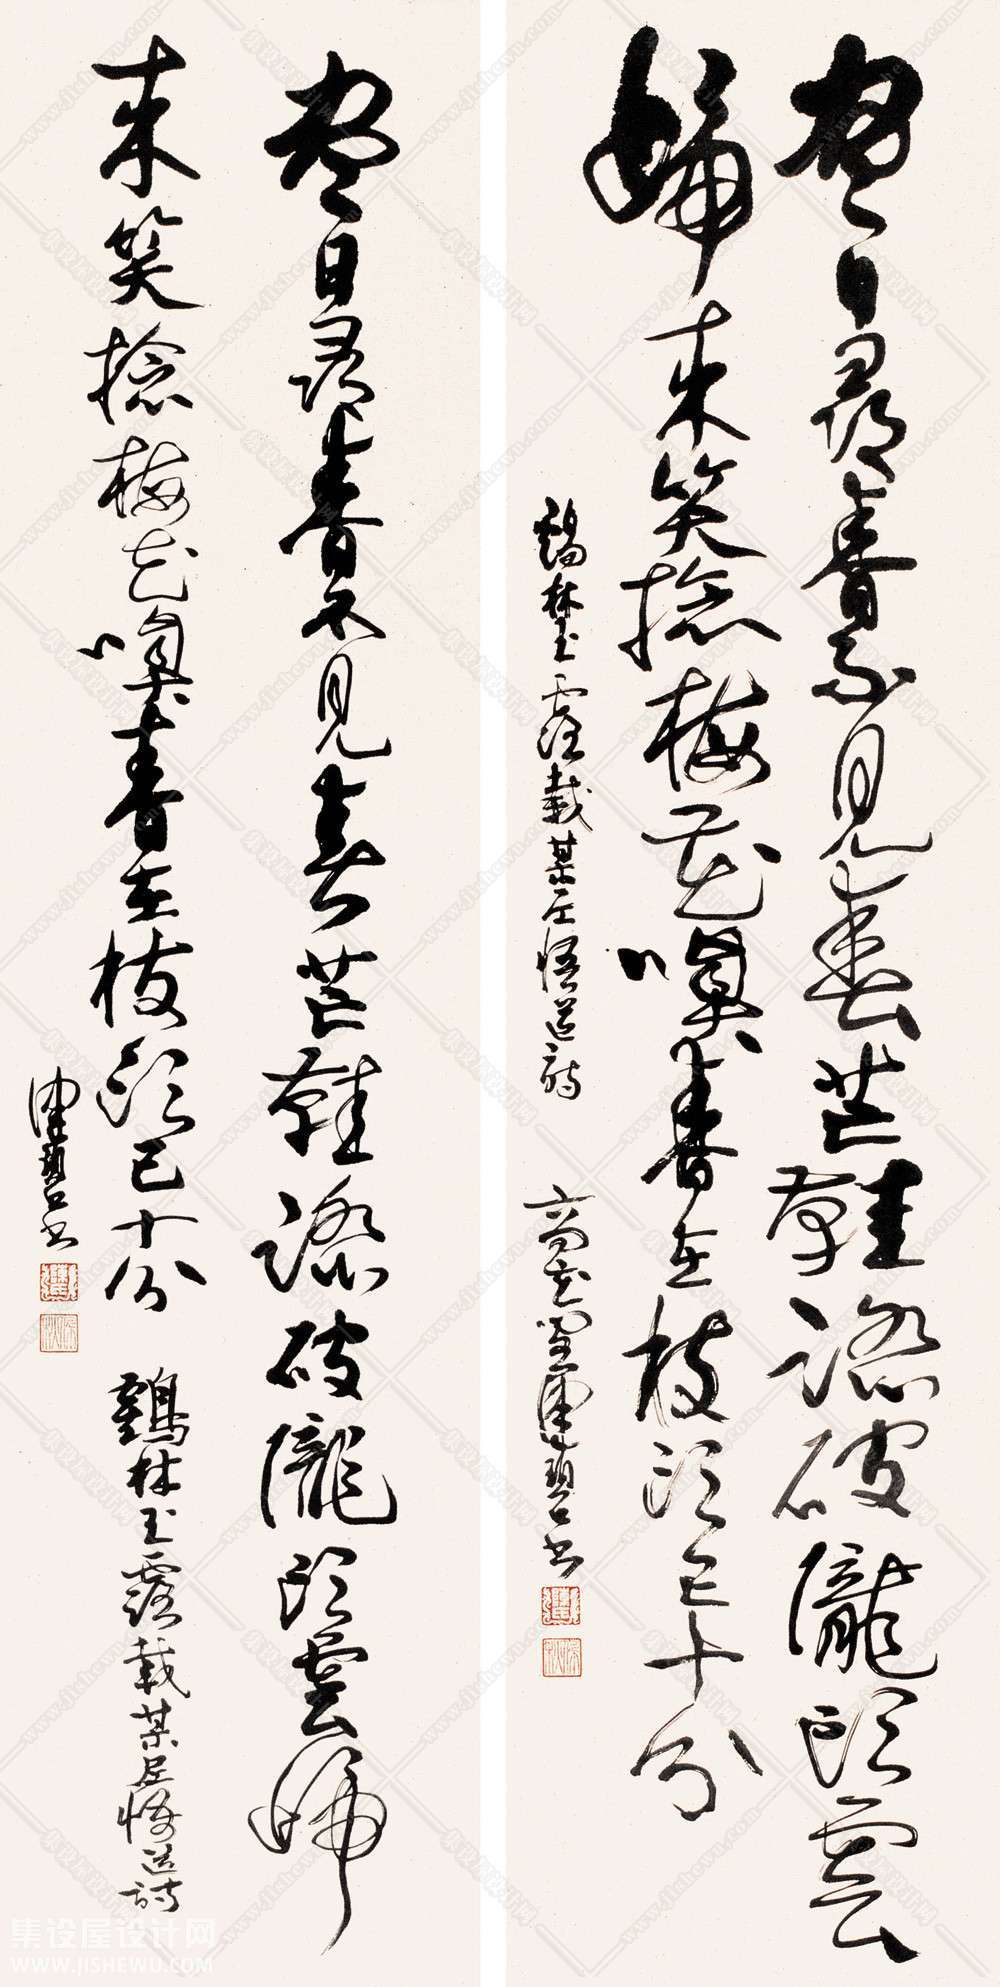 盡日尋春不見春芒鞋踏破隴頭雲
歸來笑捻梅花嗅春在枝頭已十分
鶴林玉露載某尼悟道詩
書
盡日尋春不見春芒鞋踏破隴頭雲歸
來笑捻梅花嗅春在枝頭已十分 鶴林玉露載某尼悟道詩
書
集设屋设计网
WWW.JISHEWU.COM